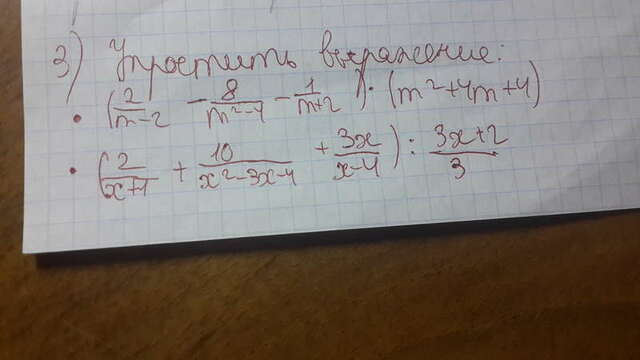 3) Упростить выражение:
• (2/(m-2) - 8/(m²-4) - 1/(m+2)) · (m²+4m+4)
• (2/(x+1) + 10/(x²-3x-4) + 3x/(x-4)) : (3x+2)/3